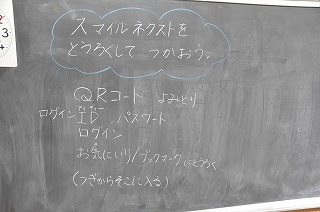 スマイルネクストを
とうろくして つかおう。
QRコード よみとり
ログインID パスワード
ログイン
お気にいり/ブックマークにとうろく
(つぎからそこに入る)
3
4